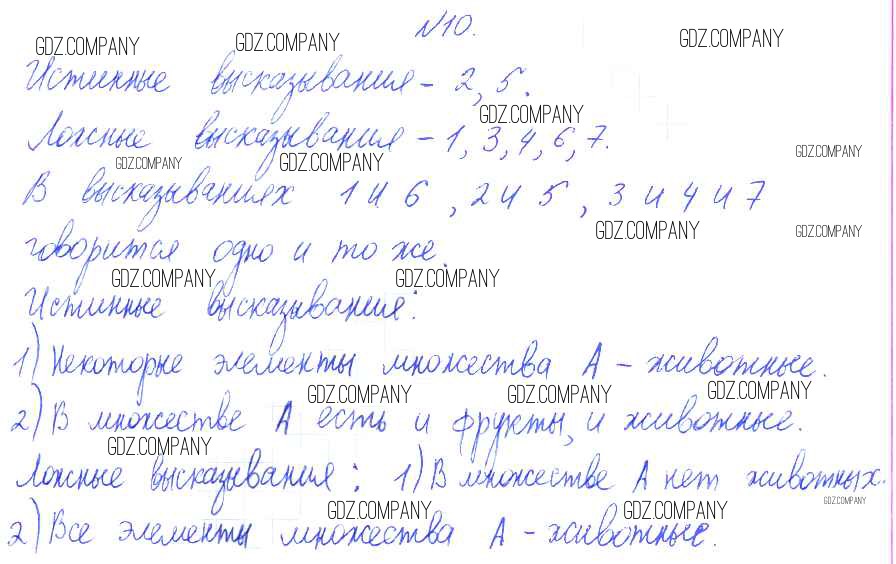 N10.
GDZ.COMPANY GDZ.COMPANY GDZ.COMPANY
Истинные высказывания – 2, 5.
GDZ.COMPANY
Ложные высказывания – 1, 3, 4, 6, 7.
GDZ.COMPANY GDZ.COMPANY GDZ.COMPANY
В высказываниях 1 и 6, 2 и 5, 3 и 4 и 7
GDZ.COMPANY GDZ.COMPANY
говорится одно и то же.
GDZ.COMPANY GDZ.COMPANY
Истинные высказывания:
1) Некоторые элементы множества А – животные.
GDZ.COMPANY GDZ.COMPANY GDZ.COMPANY
2) В множестве А есть и фрукты, и животные.
GDZ.COMPANY
Ложные высказывания: 1) В множестве А нет животных.
GDZ.COMPANY GDZ.COMPANY GDZ.COMPANY
2) Все элементы множества А – животные.